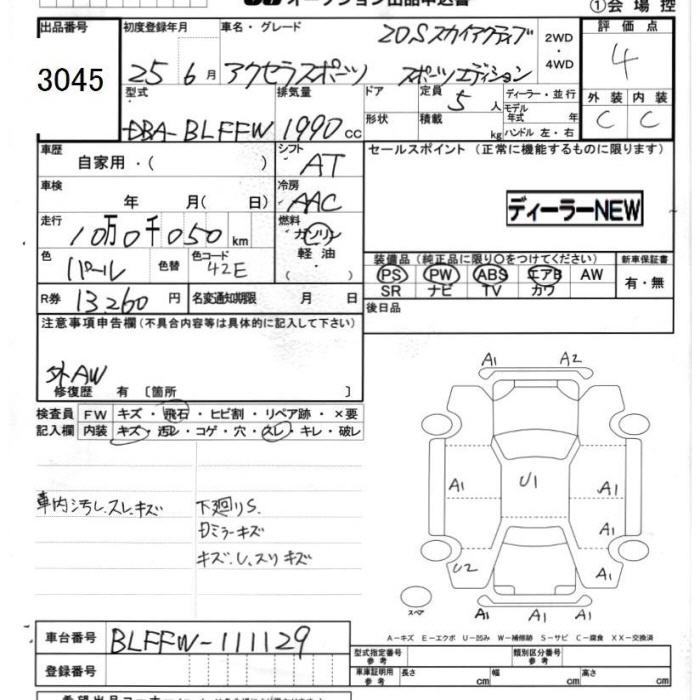 オークション出品申込書
①会場控
出品番号 3045
初度登録年月 25 6月
車名・グレード 20Sスカイアクティブ
アクセラスポーツ スポーツエディション
2WD・4WD
評価点 4
外装 C 内装 C
型式 DBA-BLFFW
排気量 1990cc
ドア 形状
定員 5人
積載 kg
ディーラー・並行
モデル年式 年
ハンドル 左・右
車歴 自家用・( )
シフト AT
セールスポイント (正常に機能するものに限ります)
車検 年 月( 日)
冷房 AAC
ディーラーNEW
走行 10万0千050km
燃料 ガソリン・軽油・( )
色 パール 色替
色コード 42E
装備品(純正品に限り〇をつけてください)
PS PW ABS エアB AW
SR ナビ TV カワ
新車保証書 有・無
R券 13,260円
名変通知期限 月 日
後日品
注意事項申告欄(不具合内容等は具体的に記入して下さい)
外AW
修復歴 有〔箇所 〕
検査員記入欄
FW キズ・飛石・ヒビ割・リペア跡・×要
内装 キズ・汚レ・コゲ・穴・スレ・キレ・破レ
車内汚レ、スレ、キズ
下廻りS.
Dミラーキズ
キズ、U、スリキズ
A1 A2
A1 U1 A1
A1
U2 A1
スペア
A1 A1 A1
A-キズ E-エクボ U-凹み W-補修跡 S-サビ C-腐食 XX-交換済
車台番号 BLFFW-111129
登録番号
型式指定番号 参考
類別区分番号 参考
車庫証明用 参考 長さ cm 幅 cm 高さ cm
希望出品コーナー